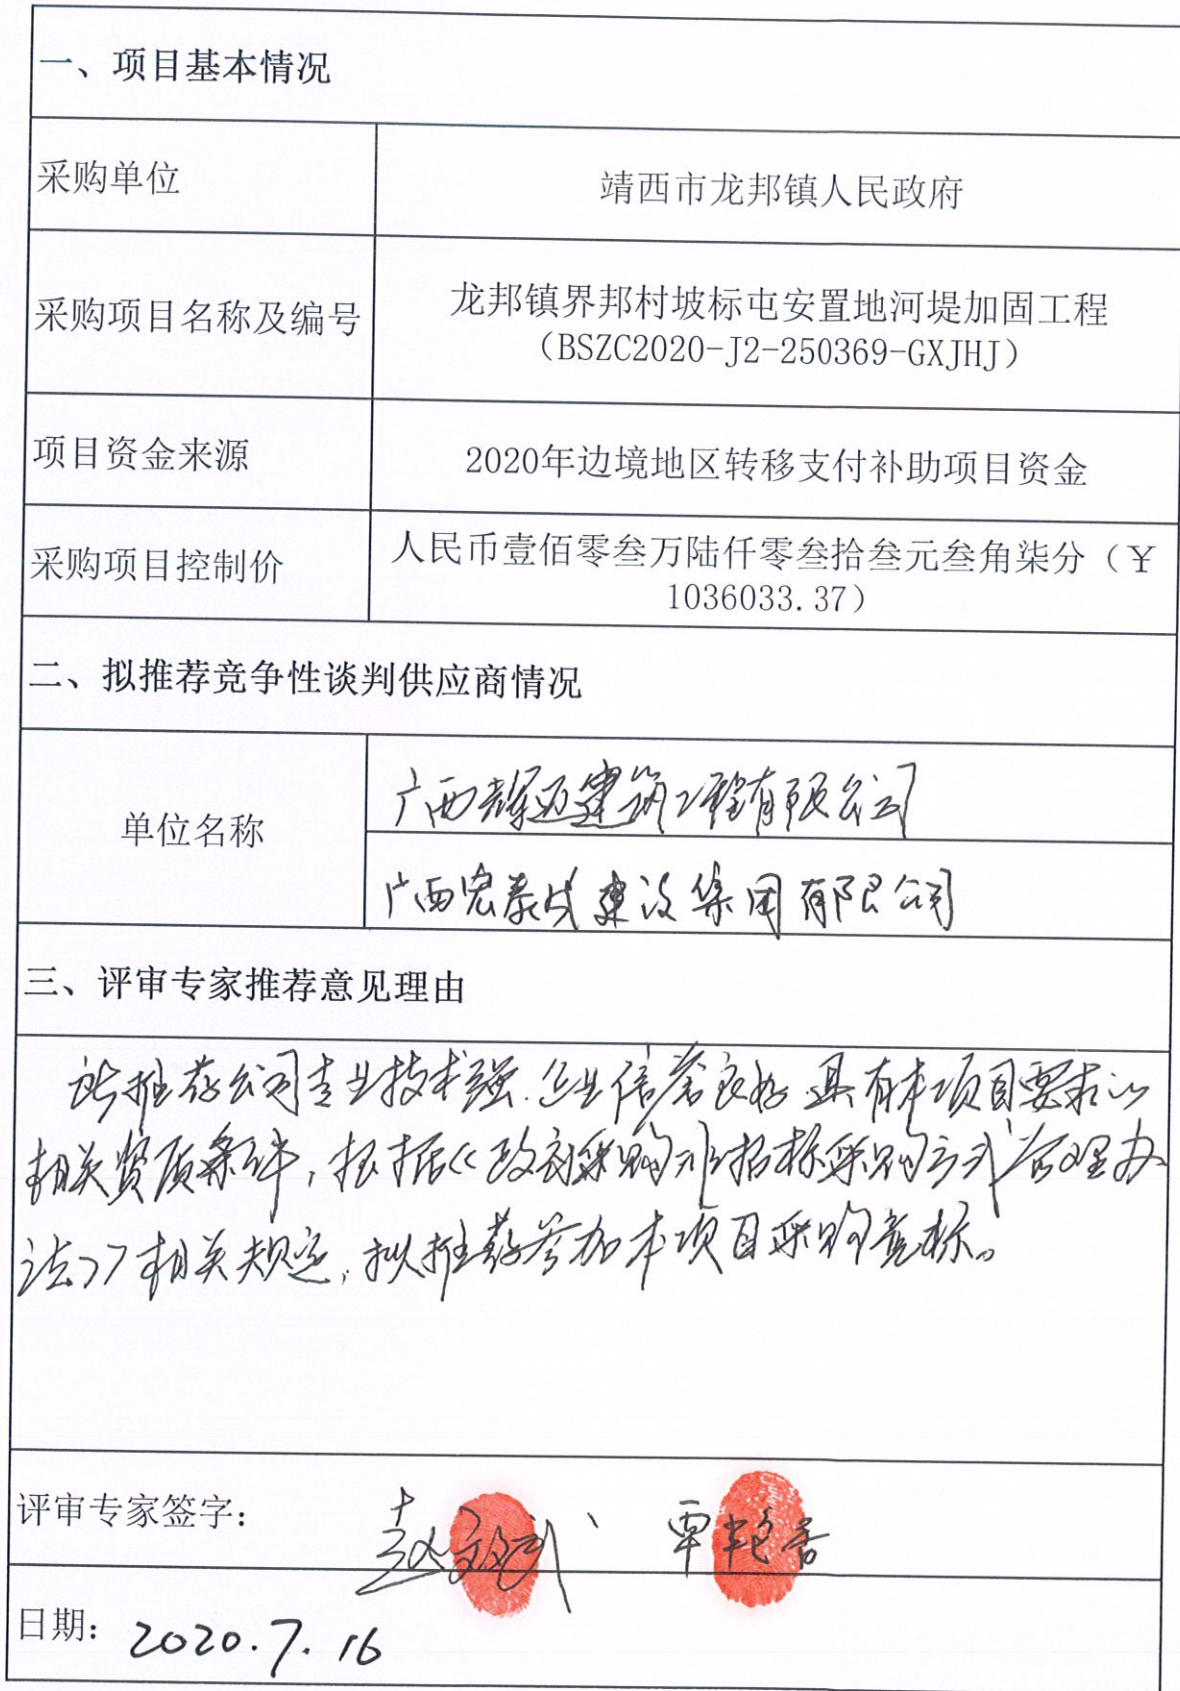 一、项目基本情况
采购单位
靖西市龙邦镇人民政府
采购项目名称及编号
龙邦镇界邦村坡标屯安置地河堤加固工程
（BSZC2020-J2-250369-GXJHJ）
项目资金来源
2020年边境地区转移支付补助项目资金
采购项目控制价
人民币壹佰零叁万陆仟零叁拾叁元叁角柒分（￥
1036033.37）
二、拟推荐竞争性谈判供应商情况
单位名称
广西辉迈建筑工程有限公司
广西宏泰成建设集团有限公司
三、评审专家推荐意见理由
所推荐公司专业技术强.企业信誉良好.具有本项目要求的
相关资质条件，根据《政府采购非招标采购方式管理办
法》相关规定，拟推荐参加本项目采购竞标。
评审专家签字：
赵文武、覃艳香
日期：2020.7.16